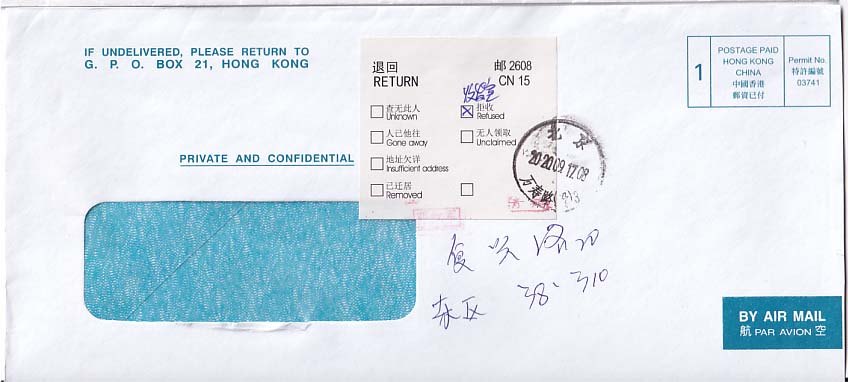 IF UNDELIVERED, PLEASE RETURN TO
G. P. O. BOX 21, HONG KONG
PRIVATE AND CONFIDENTIAL
退回
RETURN
邮 2608
CN 15
查无此人
Unknown
拒收
Refused
人已他往
Gone away
无人领取
Unclaimed
地址欠详
Insufficient address
已迁居
Removed
1
POSTAGE PAID
HONG KONG
CHINA
中國香港
郵資已付
Permit No.
特許編號
03741
北京
2020.09.17.08
万寿路
东区 38-310
BY AIR MAIL
航 PAR AVION 空